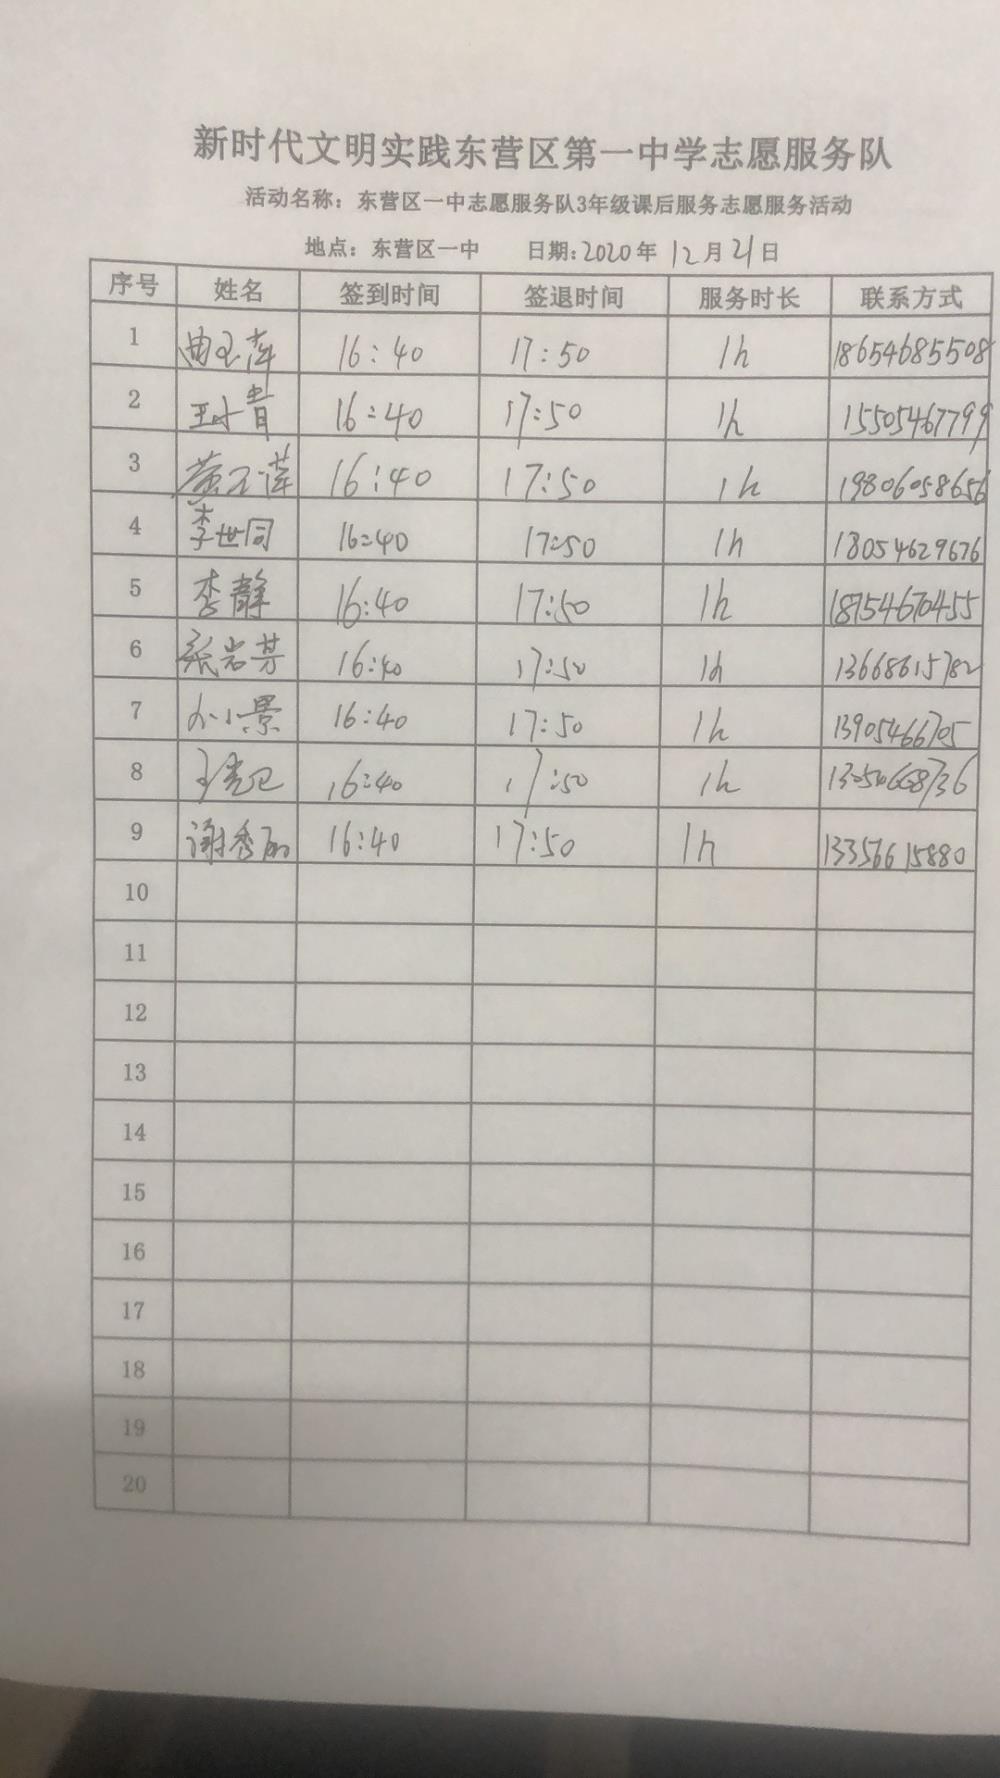 新时代文明实践东营区第一中学志愿服务队
活动名称：东营区一中志愿服务队3年级课后服务志愿服务活动
地点：东营区一中 日期:2020年 12月21日
序号 姓名 签到时间 签退时间 服务时长 联系方式
1 曲玉萍 16:40 17:50 1h 18654685508
2 16:40 17:50 1h 15505467799
3 16:40 17:50 1h 19806058656
4 李世同 16:40 17:50 1h 18054629676
5 李静 16:40 17:50 1h 18754670455
6 张岩芳 16:40 17:50 1h 13668615782
7 16:40 17:50 1h 13905466705
8 16:40 17:50 1h
9 谢秀丽 16:40 17:50 1h 13356615880
10
11
12
13
14
15
16
17
18
19
20